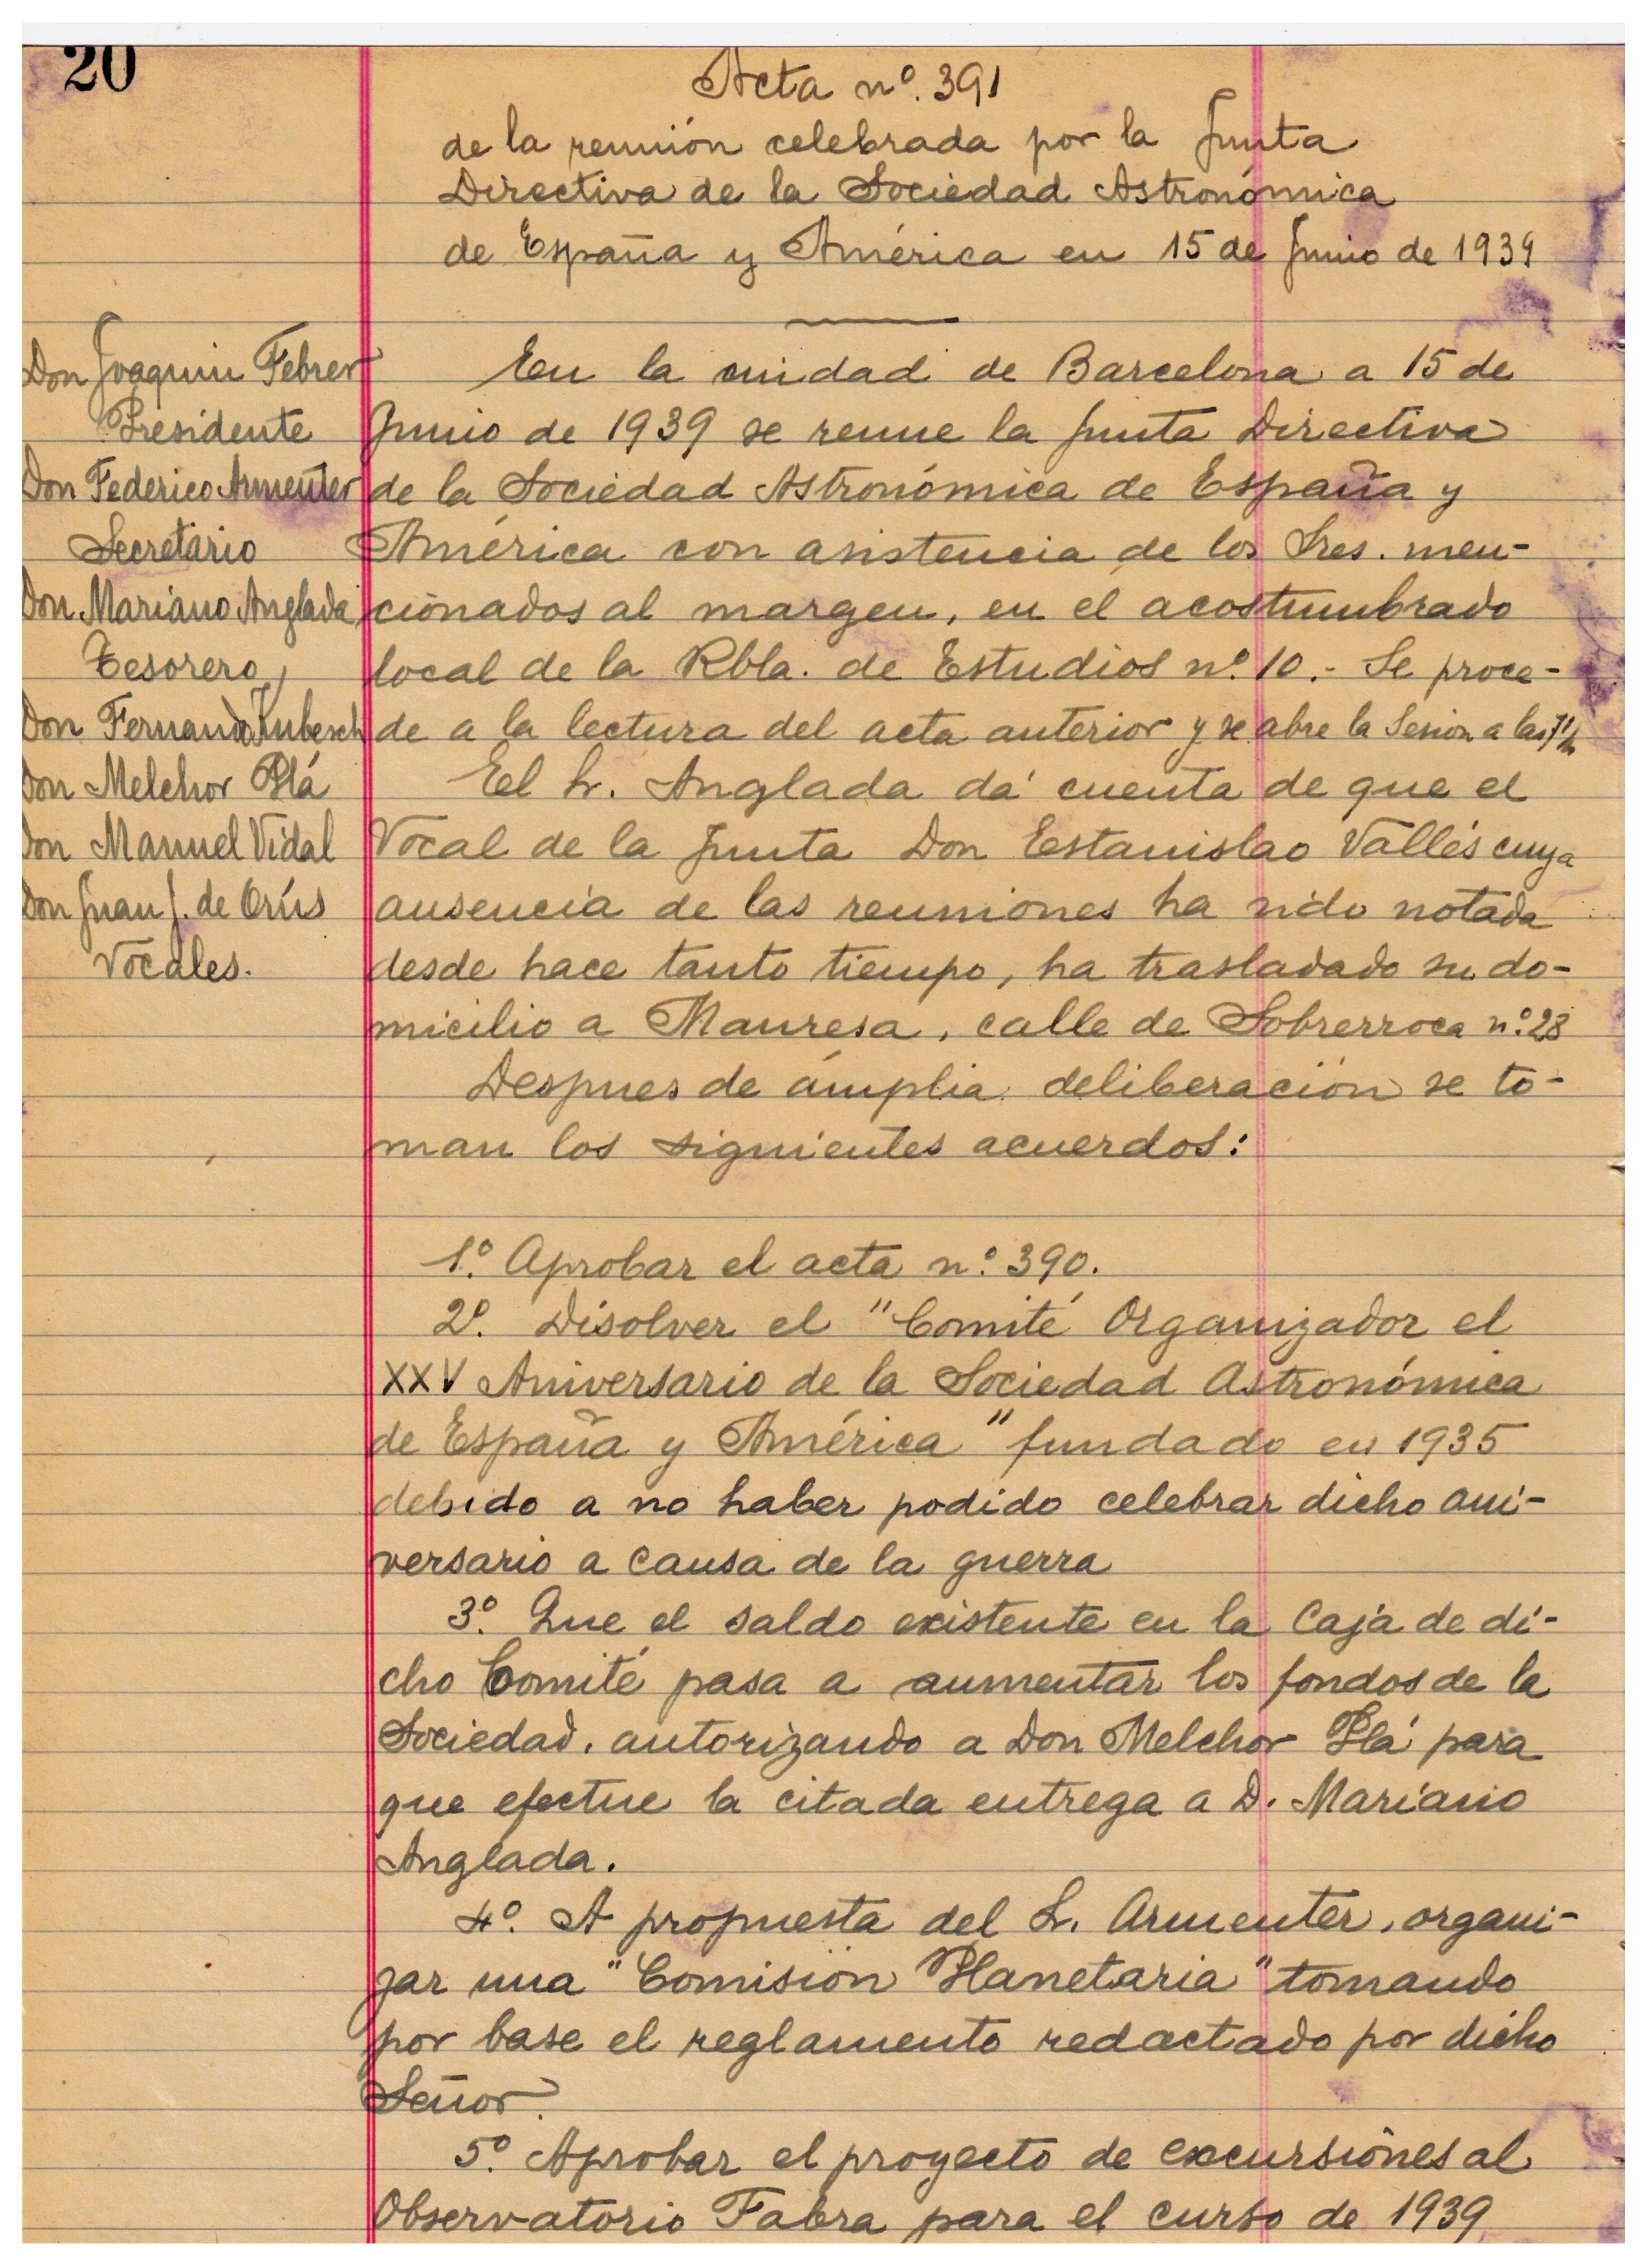 20
Acta nº. 391
de la reunión celebrada por la Junta
Directiva de la Sociedad Astronómica
de España y América en 15 de Junio de 1939
Don Joaquin Febrer
Presidente
Don Federico Armenter
Secretario
Don Mariano Anglada
Tesorero
Don Fernando Kubesch
Don Melchor Plá
Don Manuel Vidal
Don Juan J. de Orús
Vocales.
En la ciudad de Barcelona a 15 de
Junio de 1939 se reune la Junta Directiva
de la Sociedad Astronómica de España y
América con asistencia de los Sres. men-
cionados al margen, en el acostumbrado
local de la Rbla. de Estudios nº. 10.- Se proce-
de a la lectura del acta anterior y se abre la Sesion a las
El Sr. Anglada dá cuenta de que el
Vocal de la Junta Don Estanislao Vallés cuya
ausencia de las reuniones ha sido notada
desde hace tanto tiempo, ha trasladado su do-
micilio a Manresa, calle de Sobrerroca nº. 28
Despues de ámplia deliberación se to-
man los siguientes acuerdos:
1º. Aprobar el acta nº. 390.
2º. Disolver el "Comité Organizador el
XXV Aniversario de la Sociedad Astronómica
de España y América" fundado en 1935
debido a no haber podido celebrar dicho ani-
versario a causa de la guerra
3º. Que el saldo existente en la Caja de di-
cho Comité pasa a aumentar los fondos de la
Sociedad, autorizando a Don Melchor Plá para
que efectue la citada entrega a D. Mariano
Anglada.
4º. A propuesta del Sr. Armenter, organi-
zar una "Comisión Planetaria" tomando
por base el reglamento redactado por dicho
Señor.
5º. Aprobar el proyecto de excursiones al
Observatorio Fabra para el curso de 1939